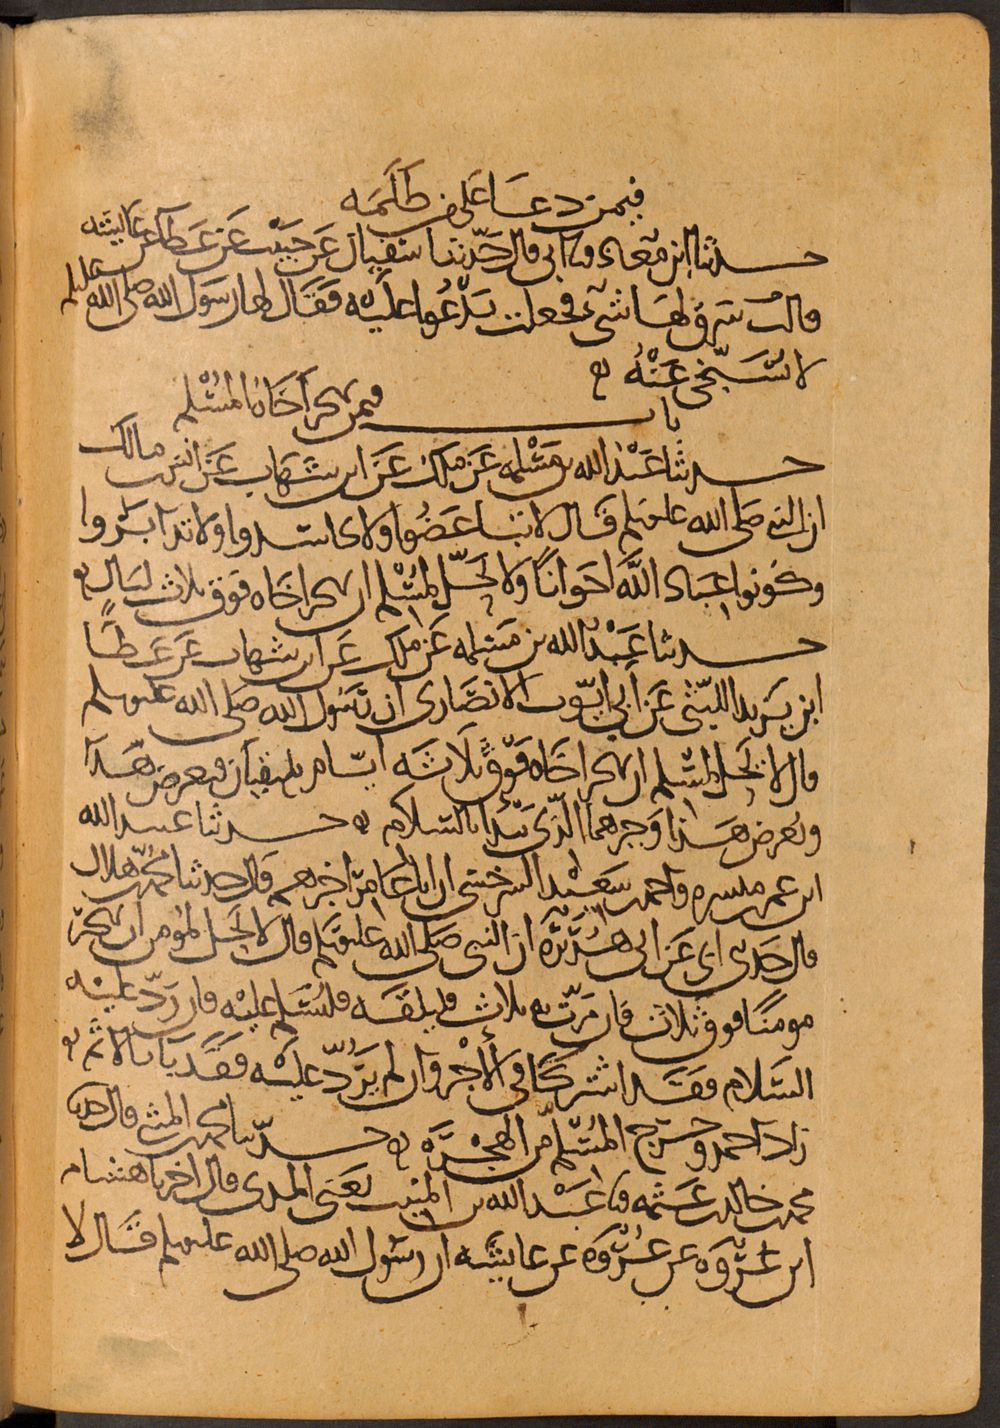 فيمن دعا على من ظلمه
حدثنا ابن معاذ نا ابي قال حدثنا سفيان عن حبيب عن عطا عن عايشه
قالت سرق لها شيء فجعلت تدعوا عليه فقال لها رسول الله صلى الله عليه وسلم
لا تسبخي عنه
باب فيمن يهجر أخاه المسلم
حدثنا عبد الله بن مسلمه عن ملك عن ابن شهاب عن انس بن مالك
ان النبي صلى الله عليه وسلم قال لا تباغضوا ولا تحاسدوا ولا تدابروا
وكونوا عباد الله اخوانًا ولا يحل لمسلم ان يهجر اخاه فوق ثلاث ليال
حدثنا عبد الله بن مسلمه عن ملك عن ابن شهاب عن عطا
ابن يزيد الليثي عن ابي ايوب الانصاري ان رسول الله صلى الله عليه وسلم
قال لا يحل لمسلم ان يهجر اخاه فوق ثلاثه ايام يلتقيان فيعرض هذا
ويعرض هذا وخيرهما الذي يبدأ بالسلام حدثنا عبيد الله
ابن عمر بن ميسره واحمد بن سعيد السرخسي ان ابا عامر اخبرهم قال حدثنا محمد بن هلال
قال حدثني ابي عن ابي هريرة ان النبي صلى الله عليه وسلم قال لا يحل لمؤمن ان يهجر
مومنًا فوق ثلاث فان مرت به ثلاث فليلقه فليسلم عليه فان رد عليه
السلام فقد اشتركا في الأجر وان لم يرد عليه فقد باء بالاثم
زاد احمد وخرج المسلم من الهجرة حدثنا محمد بن المثنى قال حدثنا
محمد بن خالد بن عثمه نا عبد الله بن المنيب يعني المدني قال اخبرنا هشام
ابن عروه عن عروة عن عايشه ان رسول الله صلى الله عليه وسلم قال لا